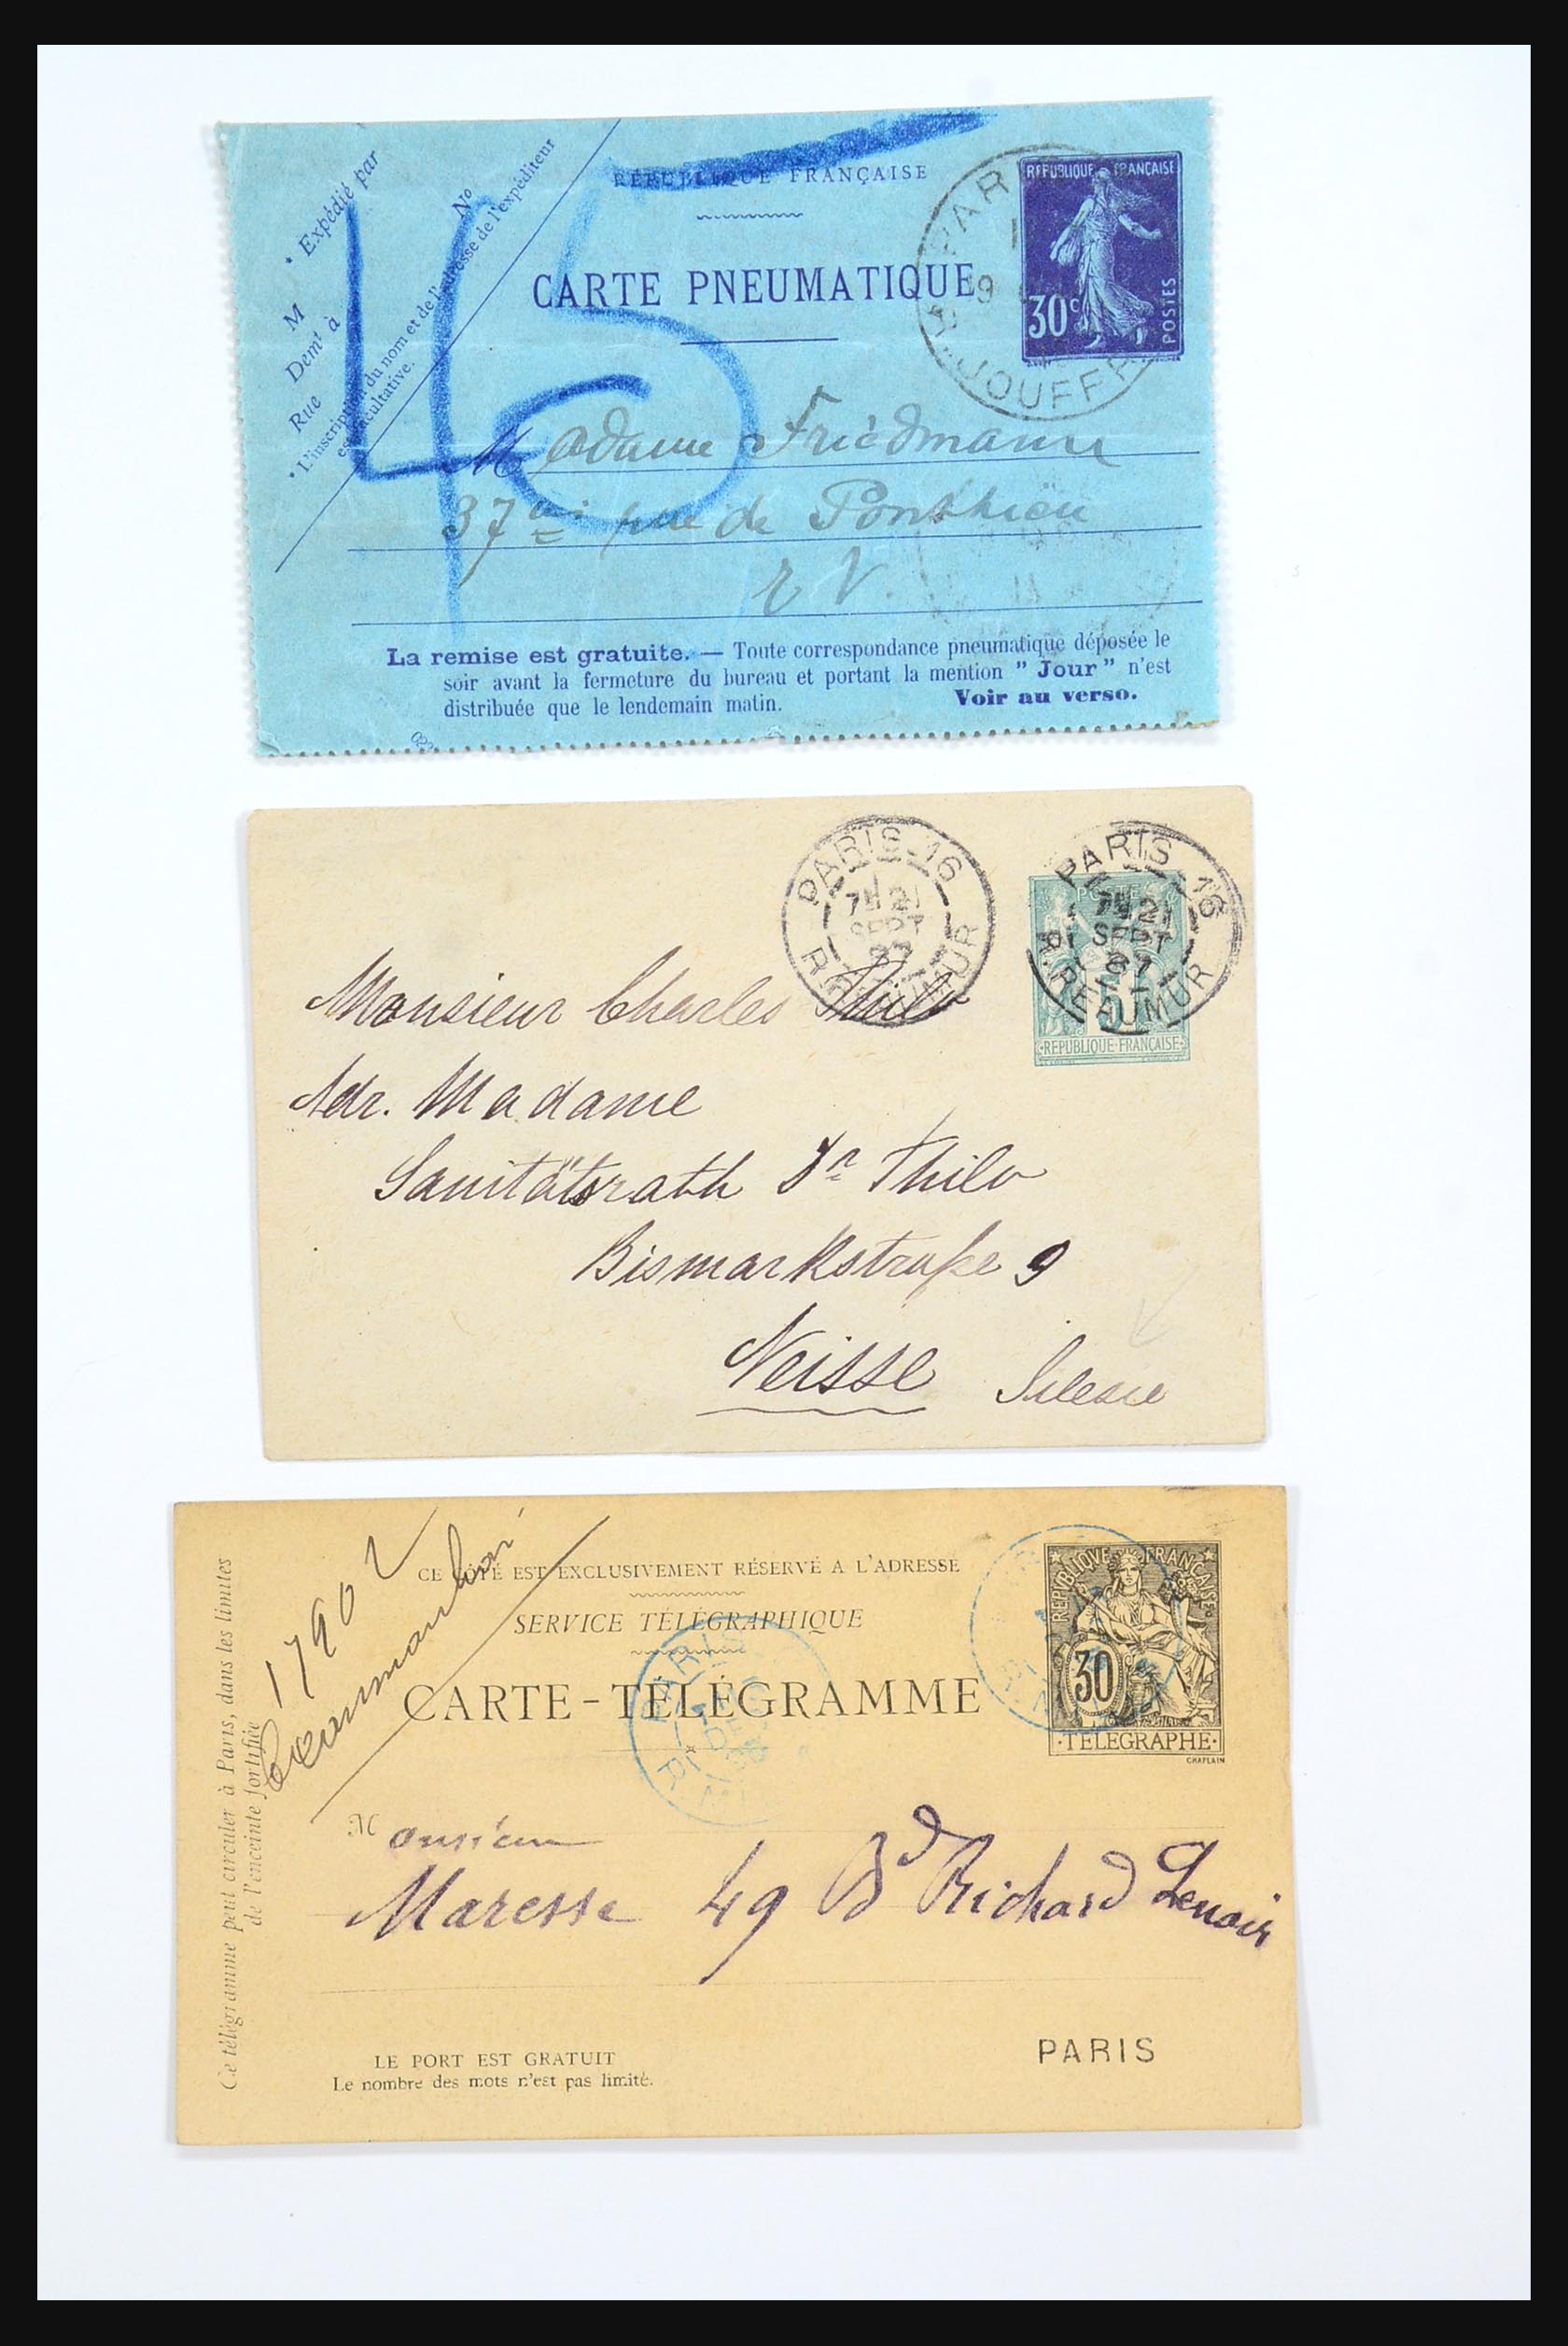 * Expédié par
M
Demt à
Rue
No
* L'inscription du nom et de l'adresse de l'expéditeur
est facultative.
RÉPUBLIQUE FRANÇAISE
CARTE PNEUMATIQUE
45
REPUBLIQUE FRANÇAISE
30c
POSTES
R. JOUFFR
Madame Friedmann
37 rue de Ponthieu
E V.
La remise est gratuite. — Toute correspondance pneumatique déposée le
soir avant la fermeture du bureau et portant la mention " Jour " n'est
distribuée que le lendemain matin.
Voir au verso.
PARIS 16
SEPT
PARIS 16
SEPT
R. REAUMUR
POSTES
5
REPUBLIQUE FRANÇAISE
Monsieur Charles Thilo
Adr. Madame
Sanitätsrath Dr Thilo
Bismarkstraße 9
Neisse Silesie
Ce télégramme peut circuler à Paris, dans les limites
de l'enceinte fortifiée
CE CÔTÉ EST EXCLUSIVEMENT RÉSERVÉ A L'ADRESSE
SERVICE TÉLÉGRAPHIQUE
CARTE-TÉLÉGRAMME
PARIS
REPUBLIQUE FRANÇAISE
30
TELEGRAPHE
CHAPLAIN
Monsieur
Maresse 49 Bd Richard Lenoir
PARIS
LE PORT EST GRATUIT
Le nombre des mots n'est pas limité.